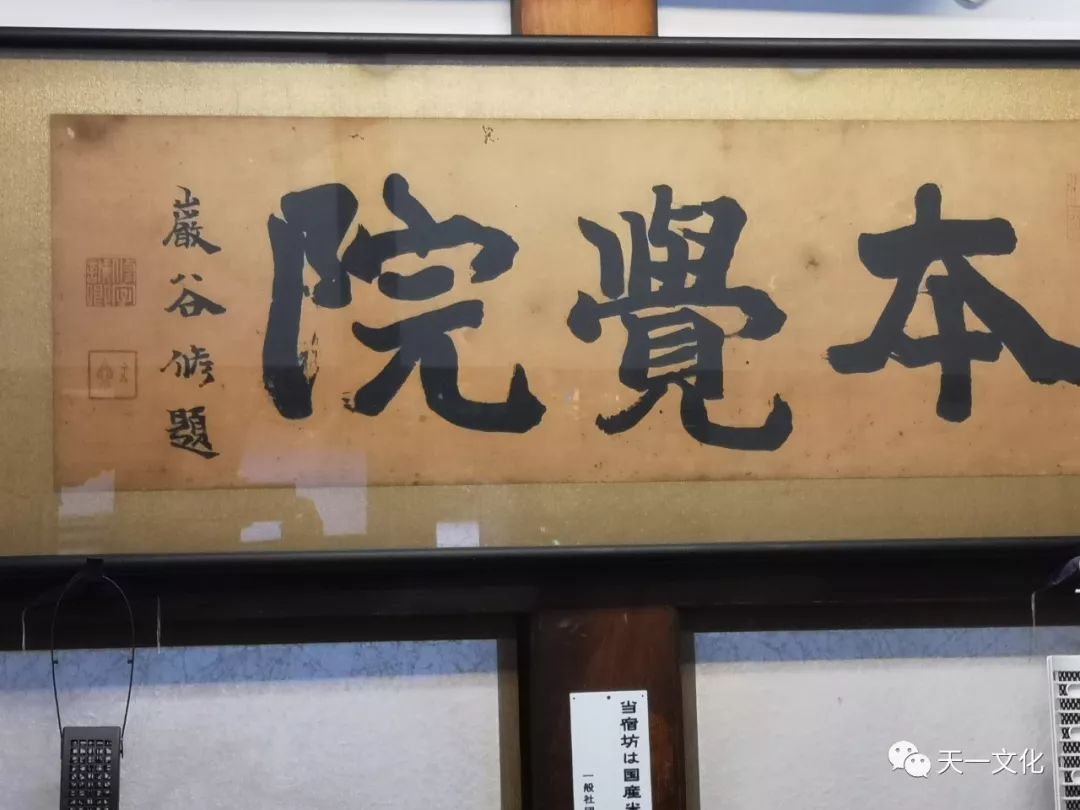 本覺院
巖谷修題
当宿坊は国産米
一般社団
天一文化